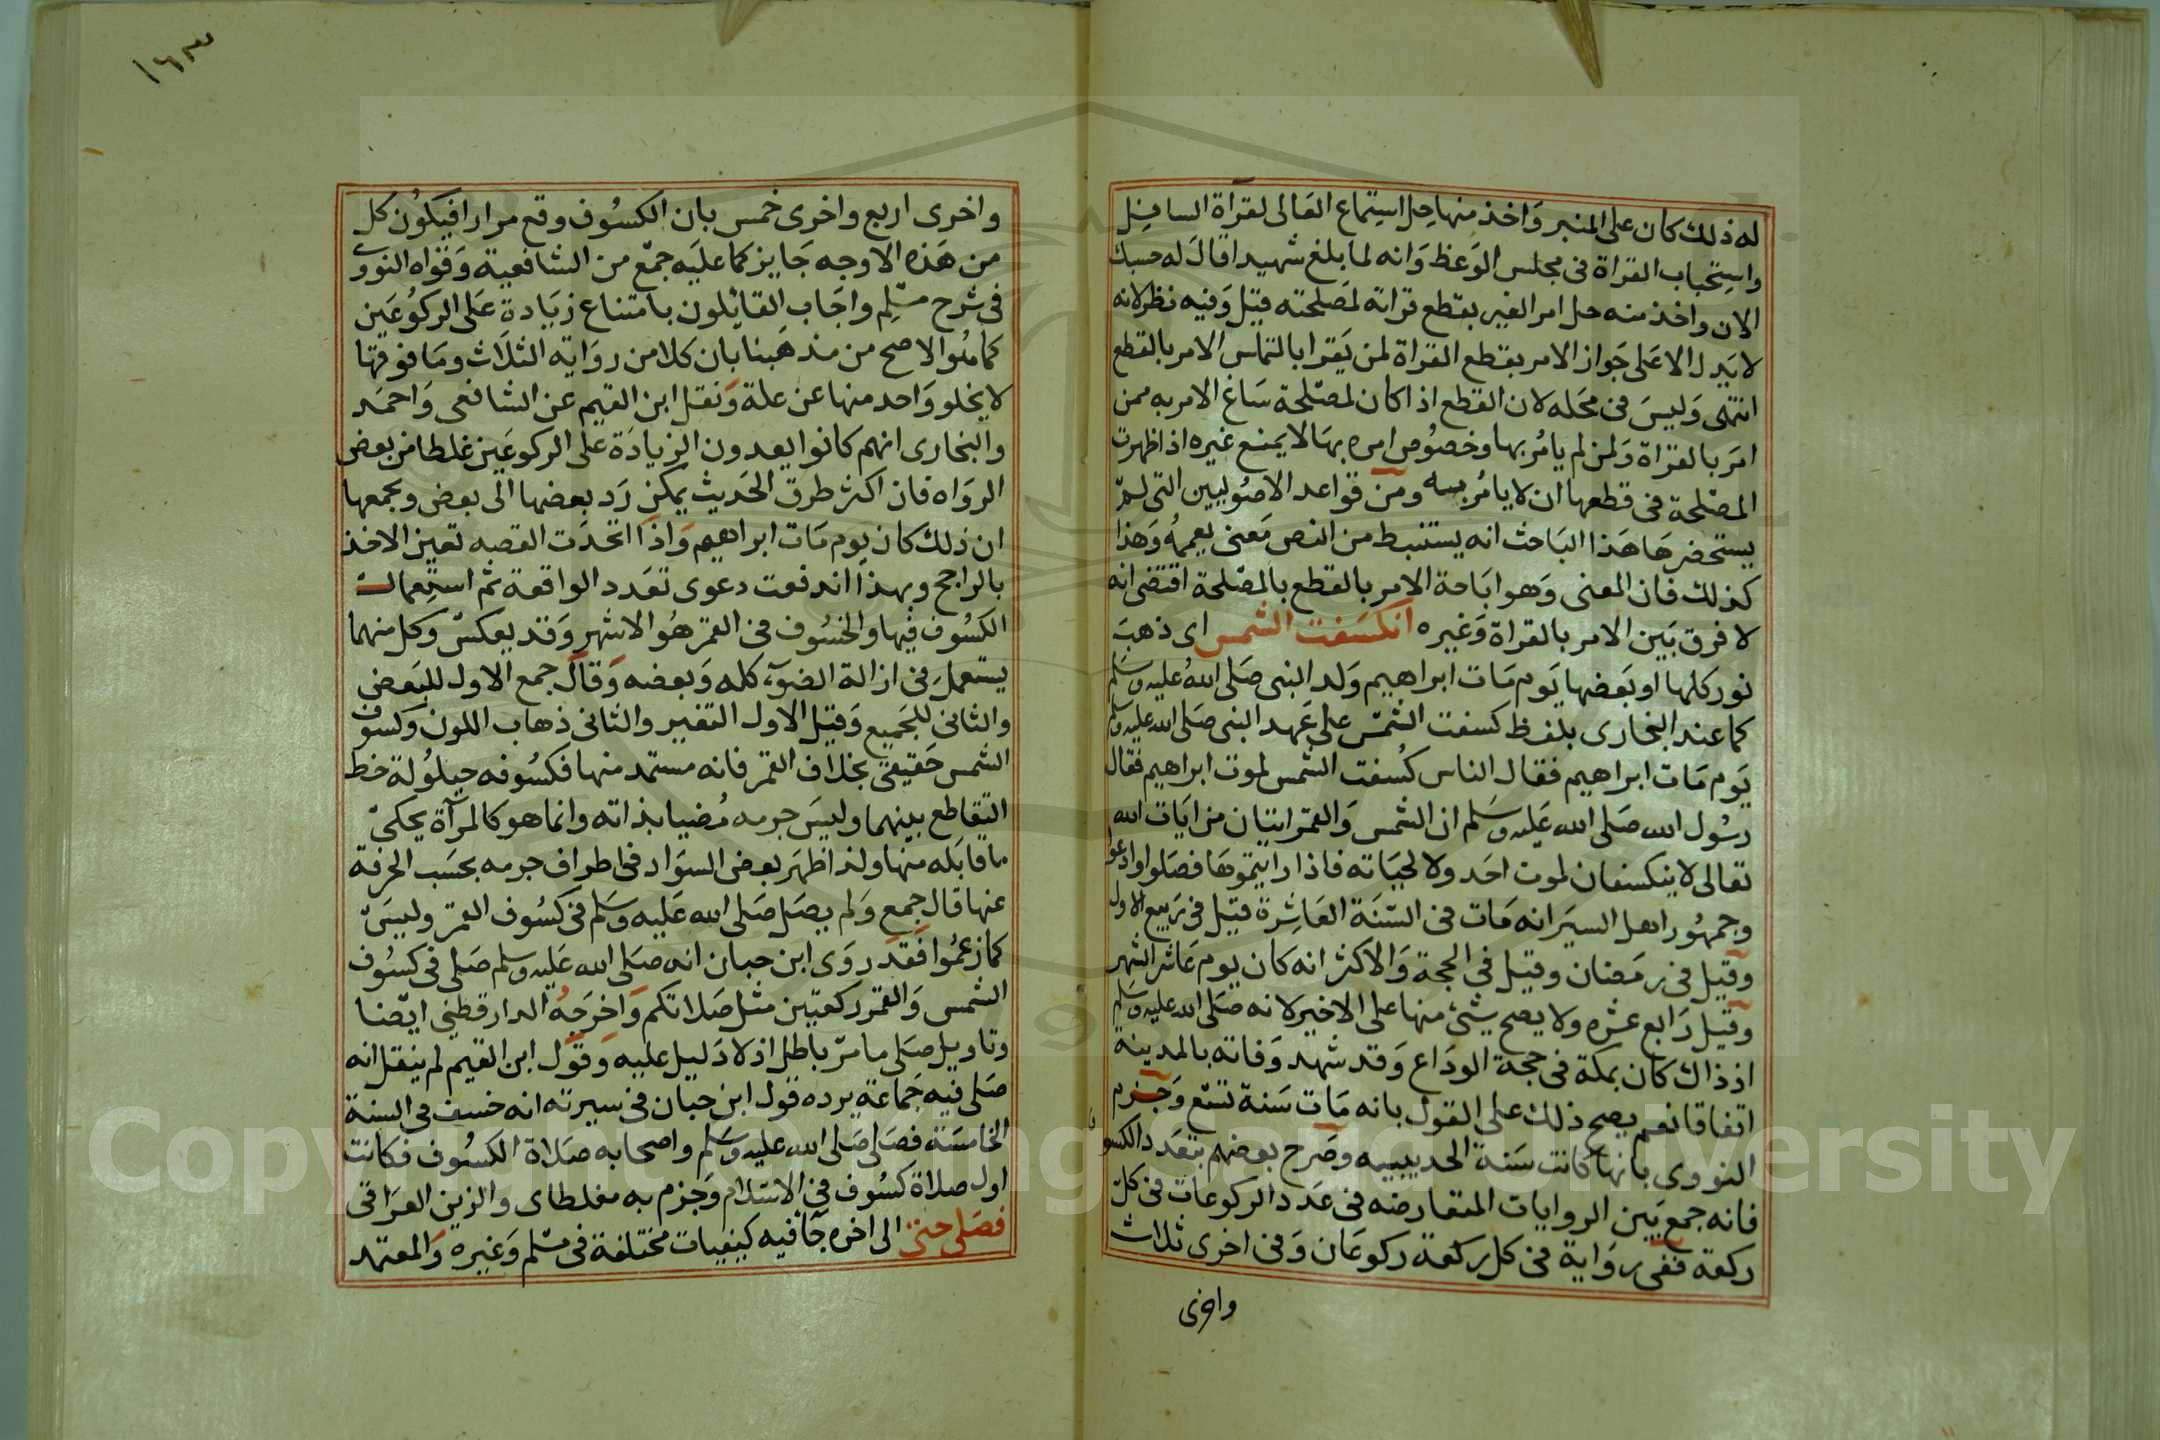 له ذلك كان على المنبر واخذ منها حل استماع العالى لقراة السافل
واستحباب القراة فى مجلس الوعظ وانه لما بلغ شهيدا قال له حسبك
الان واخذ منه حل امر الغير بقطع قراته لمصلحته قيل وفيه نظر لانه
لا يدل الا على جواز الامر بقطع القراة لمن يقرا بالتماس الامر بالقطع
انتهى وليس فى محله لان القطع اذا كان لمصلحة ساغ الامر به ممن
امر بالقراة ولمن لم يامر بها وخصوص امره بها لا يمنع غيره اذا ظهرت
المصلحة فى قطعها ان لا يامر به ومن قواعد الاصوليين التى لم
يستحضرها هذا الباحث انه يستنبط من النص معنى يعممه وهذا
كذلك فان المعنى وهو اباحة الامر بالقطع بالمصلحة اقتضى انه
لا فرق بين الامر بالقراة وغيره انكسفت الشمس اى ذهب
نور كلها او بعضها يوم مات ابراهيم ولد النبى صلى الله عليه وسلم
كما عند البخارى بلفظ كسفت الشمس على عهد النبى صلى الله عليه وسلم
يوم مات ابراهيم فقال الناس كسفت الشمس لموت ابراهيم فقال
رسول الله صلى الله عليه وسلم ان الشمس والقمر ايتان من ايات الله
تعالى لا ينكسفان لموت احد ولا لحياته فاذا رايتموها فصلوا وادعوا
وجمهور اهل السير انه مات فى السنة العاشرة قيل فى ربيع الاول
وقيل فى رمضان وقيل فى الحجة والاكثر انه كان يوم عاشر الشهر
وقيل رابع عشره ولا يصح شئ منها على الاخير لانه صلى الله عليه وسلم
اذ ذاك كان بمكة فى حجة الوداع وقد شهد وفاته بالمدينه
اتفاقا نعم يصح ذلك على القول بانه مات سنة تسع وجزم
النووى بانها كانت سنة الحديبيه وصرح بعضهم بتعدد الكسو
ف
فانه جمع بين الروايات المتعارضه فى عدد الركوعات فى كل
ركعة ففى رواية فى كل ركعة ركوعان وفى اخرى ثلاث
واخرى
١٦٣
واخرى اربع واخرى خمس بان الكسوف وقع مرارا فيكون كل
من هذه الاوجه جايز كما عليه جمع من الشافعية وقواه النووى
فى شرح مسلم واجاب القايلون بامتناع زيادة على الركوعين
كما هو الاصح من مذهبنا بان كلا من رواية الثلاث وما فوقها
لا يخلو واحد منها عن علة ونقل ابن القيم عن الشافعى واحمد
والبخارى انهم كانوا يعدون الزيادة على الركوعين غلطا من بعض
الرواه فان اكثر طرق الحديث يمكن رد بعضها الى بعض ويجمعها
ان ذلك كان يوم مات ابراهيم واذا اتحدت القصه تعين الاخذ
بالراجح وبهذا اندفعت دعوى تعدد الواقعة ثم استعمال
الكسوف فيها والخسوف فى القمر هو الاشهر وقد يعكس وكل منهما
يستعمل فى ازالة الضوء كله وبعضه وقال جمع الاول للبعض
والثانى للجميع وقيل الاول التغير والثانى ذهاب اللون وكسوف
الشمس حقيقى بخلاف القمر فانه مستمد منها فكسوفه حيلولة خط
التقاطع بينهما وليس جرمه مضيا بذاته وانما هو كالمرآة يحكى
ما قابله منها ولذا ظهر بعض السواد فى اطراف جرمه بحسب الحرفة
عنها قال جمع ولم يصل صلى الله عليه وسلم فى كسوف القمر وليس
كما زعموا فقد روى ابن حبان انه صلى الله عليه وسلم صلى فى كسوف
الشمس والقمر ركعتين مثل صلاتكم واخرجه الدارقطنى ايضا
وتاويل صلى ما مر باطل اذ لا دليل عليه وقول ابن القيم لم ينقل انه
صلى فيه جماعة يرده قول ابن حبان فى سيرته انه خسف فى السنة
الخامسة فصلى صلى الله عليه وسلم واصحابه صلاة الكسوف فكانت
اول صلاة كسوف فى الاسلام وجزم به مغلطاى والزين العراقى
فصلى حتى الى اخره جا فيه كيفيات مختلفة فى مسلم وغيره والمعتمد